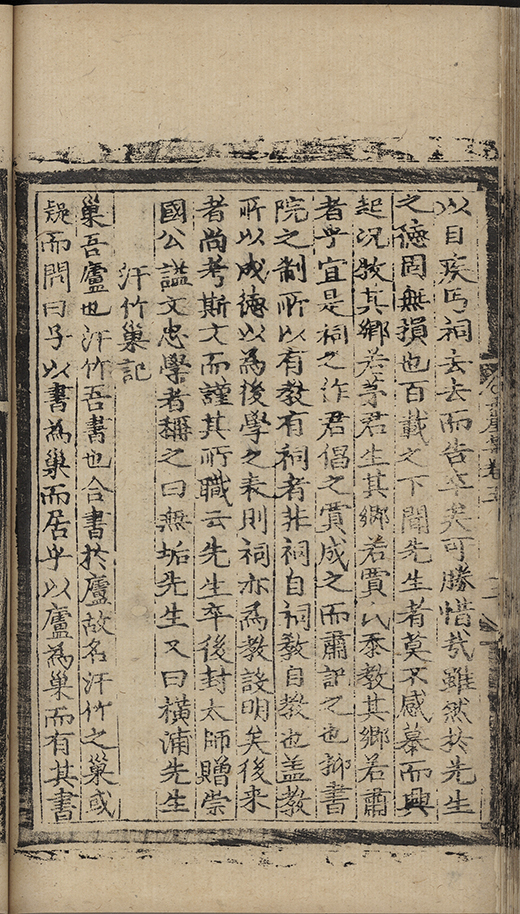 以目疾丐祠去去而告卒矣可勝惜哉雖然於先生
之德固無損也百載之下聞先生者莫不感慕而興
起况教其鄉若茅君生其鄉若賈氏黍教其鄉若肅
者乎宜是祠之作君倡之賈成之而肅記之也抑書
院之制所以有教有祠者非祠自祠教自教也盖教
所以成德以為後學之表則祠亦為教設明矣後来
者尚考斯文而謹其所職云先生卒後封太師贈崇
國公謚文忠學者稱之曰無垢先生又曰橫浦先生
汗竹巢記
巢吾廬也汗竹吾書也合書於廬故名汗竹之巢或
疑而問曰子以書為巢而居乎以廬為巢而有其書